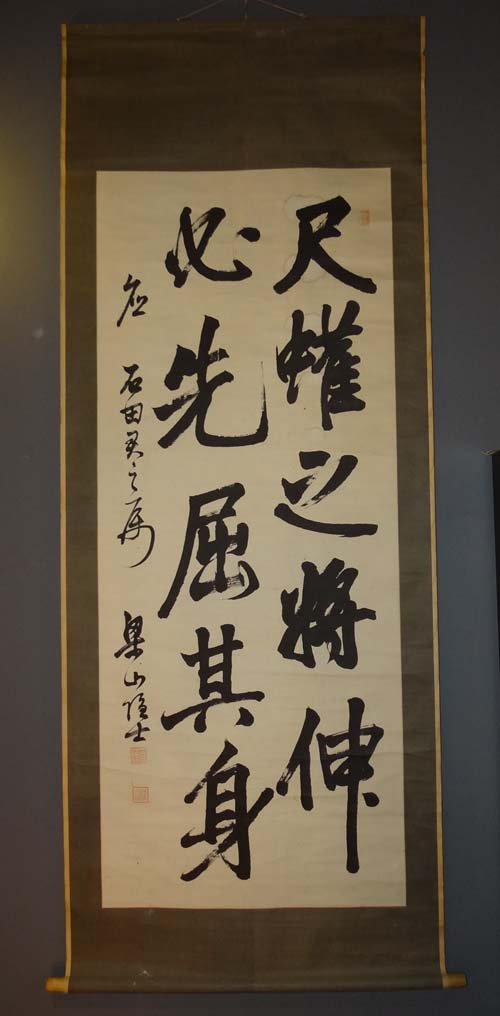 尺蠖之將伸
必先屈其身
应 石田君之属 梁山隐士